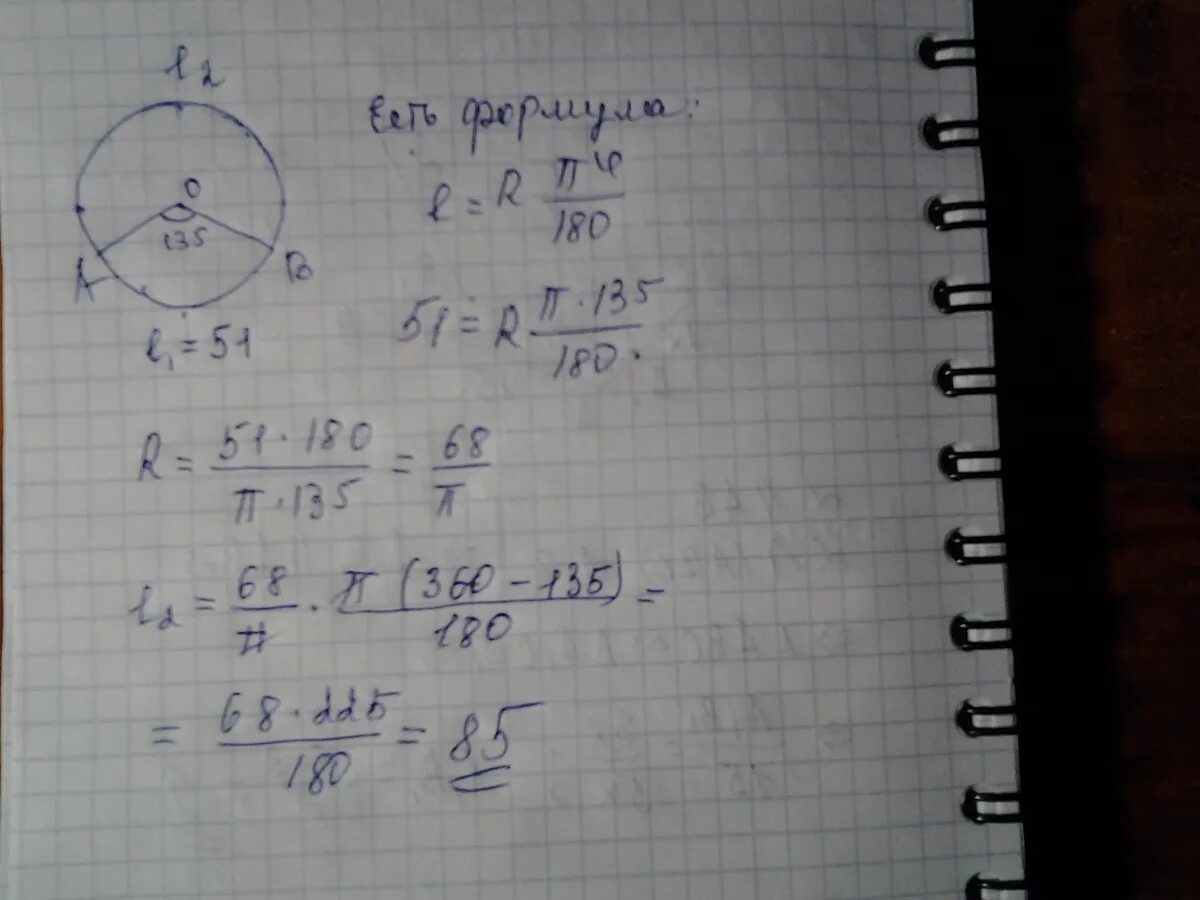 l₂
O
135
A
B
l₁ = 51
Есть формула:
l = R πφ/180
51 = R · π·135/180
R = 51·180/π·135 = 68/π
l₂ = 68/π · π(360-135)/180 =
= 68·225/180 = 85